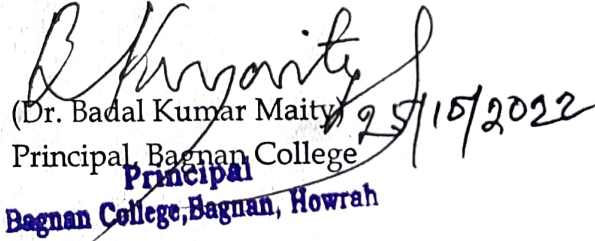 (Dr. Badal Kumar Maity)
25/15/2022
Principal, Bagnan College
Principal
Bagnan College, Bagnan, Howrah